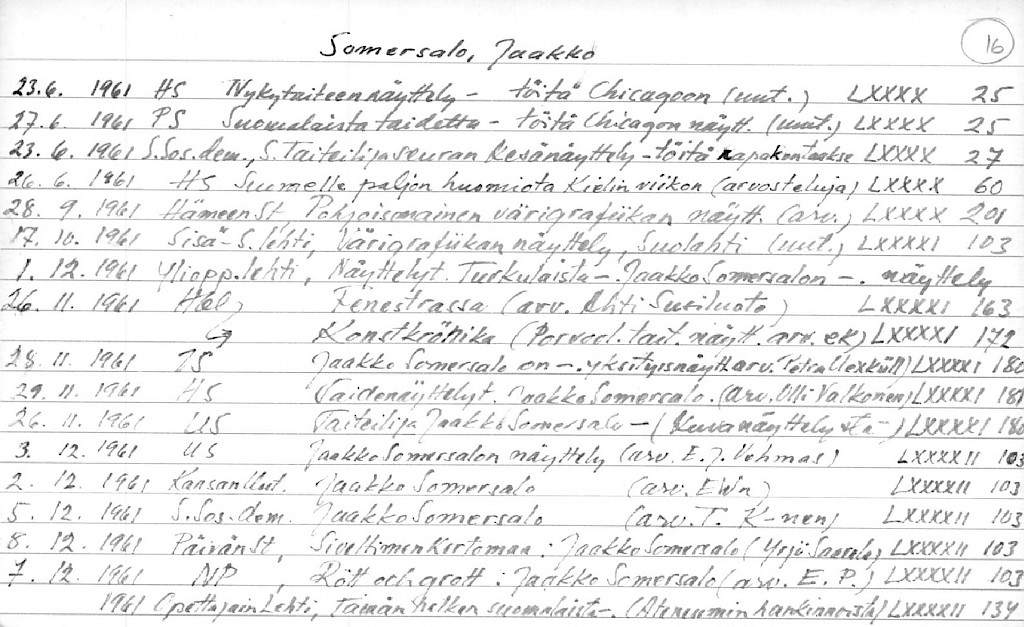 16
Somersalo, Jaakko
23.6. 1961 HS Nykytaiteen näyttely - töitä Chicagoon (uut.) LXXXX 25
27.6. 1961 PS Suomalaista taidetta - töitä Chicagon näytt. (uut.) LXXXX 25
23.6. 1961 S.Sos.dem., S. Taiteilijaseuran Kesänäyttely - töitä LXXXX 27
26.6. 1961 HS Suomelle paljon huomiota Kielin viikon (arvosteluja) LXXXX 60
28. 9. 1961 Hämeen St Pohjoismainen värigrafiikan näytt. (arv.) LXXXX 201
17. 10. 1961 Sisä-S. lehti, Värigrafiikan näyttely, Suolahti (uut.) LXXXXI 103
1. 12. 1961 Yliopp.lehti, Näyttelyt. Turkulaista - Jaakko Somersalon -. näyttely
26. 11. 1961 Hbl, Fenestrassa (arv. Ahti Susiluoto) LXXXXI 163
Konstkrönika (Porvool. tait. näytt. arv. ek) LXXXXI 172
28. 11. 1961 Jaakko Somersalo on -. yksityisnäytt. arv. LXXXXI 180
29. 11. 1961 HS Taidenäyttelyt. Jaakko Somersalo. (arv. Olli Valkonen) LXXXXI 181
26. 11. 1961 US Taiteilija Jaakko Somersalo - (Kuva näyttelystä -) LXXXXI 180
3. 12. 1961 US Jaakko Somersalon näyttely (arv. E. J. Vehmas) LXXXXII 103
2. 12. 1961 Kansan Uut. Jaakko Somersalo (arv. EWn) LXXXXII 103
5. 12. 1961 S. Sos. dem. Jaakko Somersalo (arv. T. K-nen) LXXXXII 103
8. 12. 1961 Päivän St, Siveltimen Kertomaa: Jaakko Somersalo (Yrjö Saarelo) LXXXXII 103
7. 12. 1961 NP, Rött och grott: Jaakko Somersalo (arv. E. P.) LXXXXII 103
1961 Opettajain Lehti, Tämän hetken suomalaista -. (Ateneumin hankinnoista) LXXXXII 134